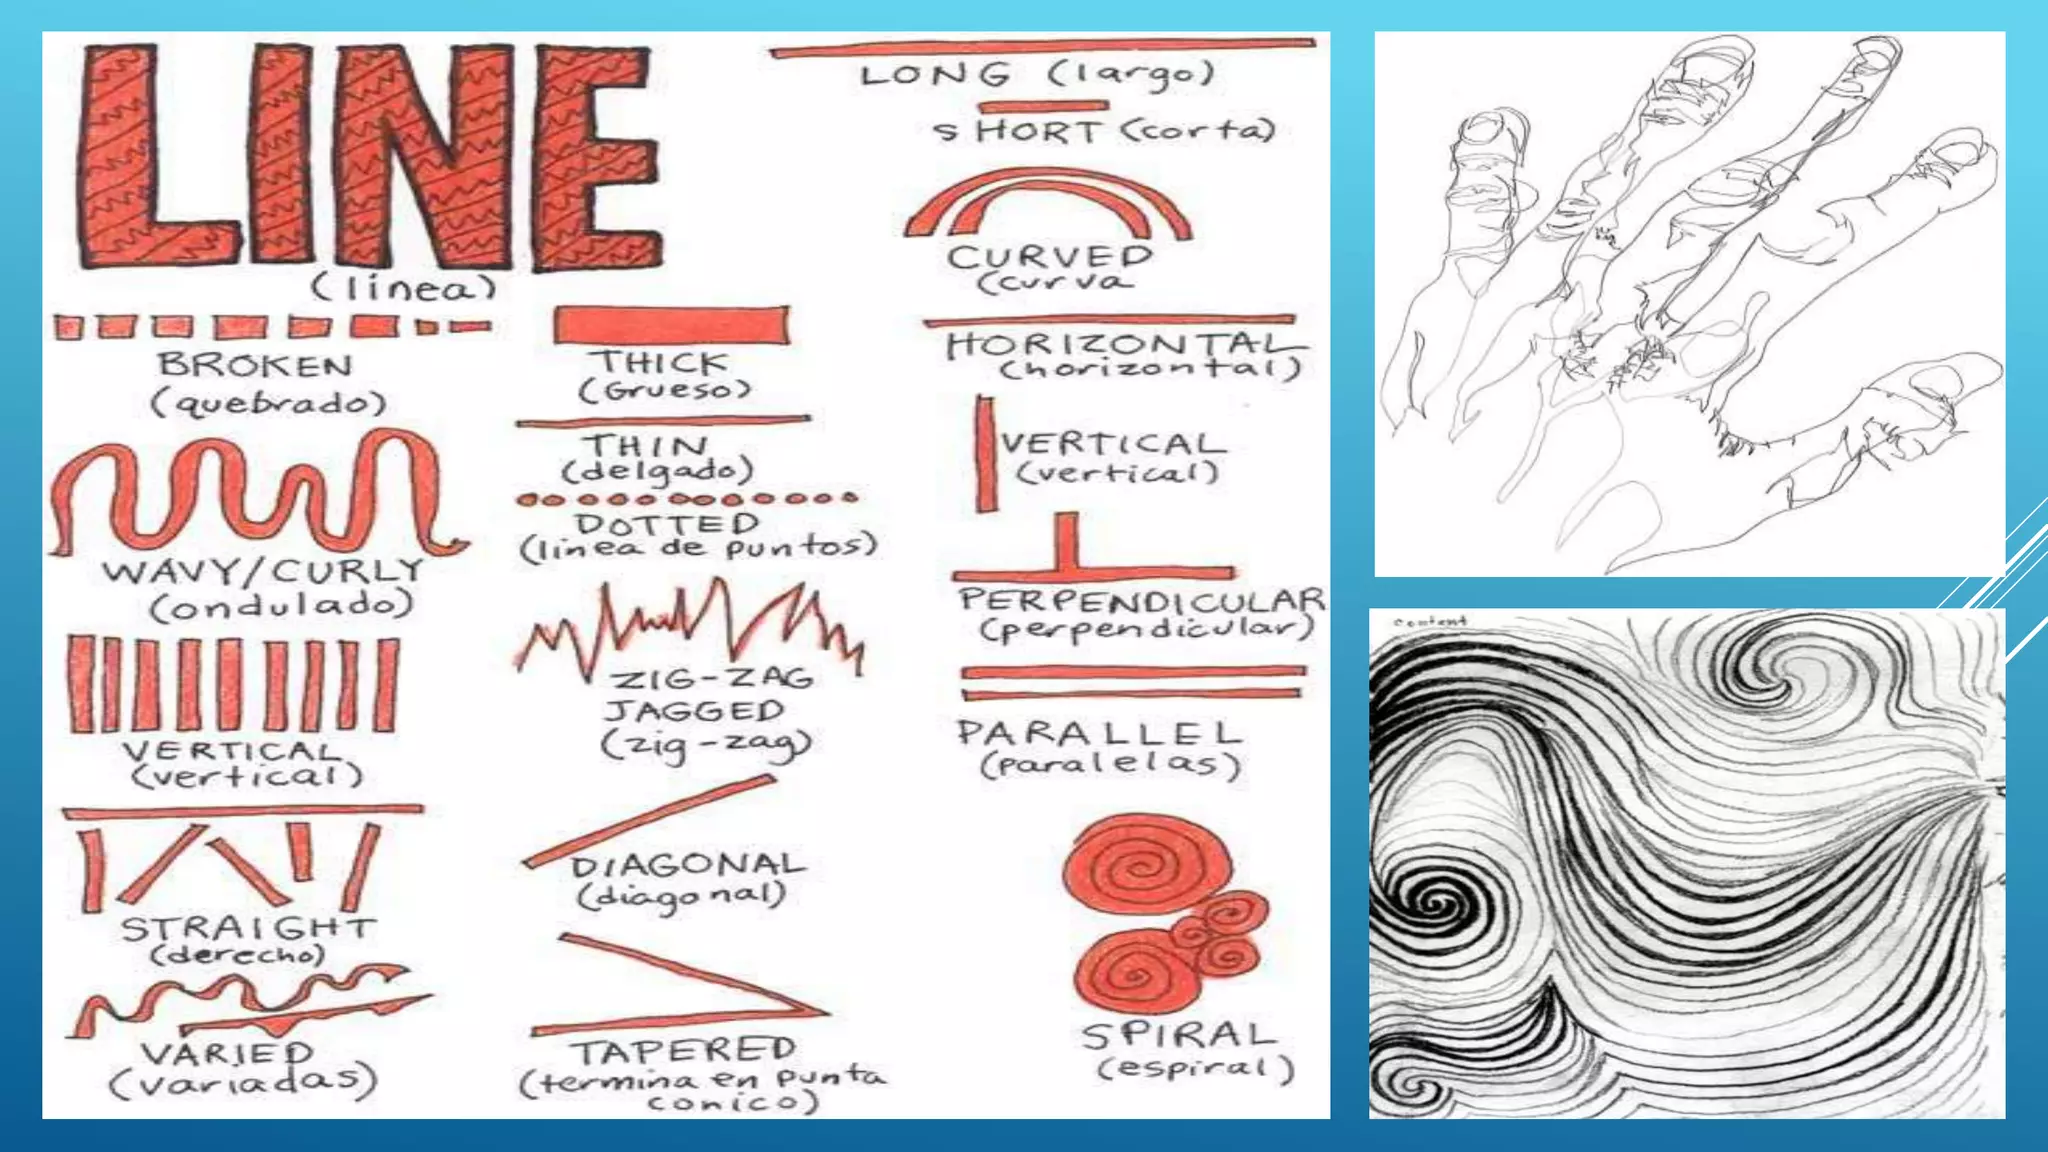 LINE
(línea)
BROKEN
(quebrado)
WAVY/CURLY
(ondulado)
VERTICAL
(vertical)
STRAIGHT
(derecho)
VARIED
(variadas)
THICK
(Grueso)
THIN
(delgado)
DOTTED
(línea de puntos)
ZIG-ZAG
JAGGED
(zig-zag)
DIAGONAL
(diagonal)
TAPERED
(termina en punta
conico)
LONG (largo)
SHORT (corta)
CURVED
(curva
HORIZONTAL
(horizontal)
VERTICAL
(vertical)
PERPENDICULAR
(perpendicular)
PARALLEL
(paralelas)
SPIRAL
(espiral)
content